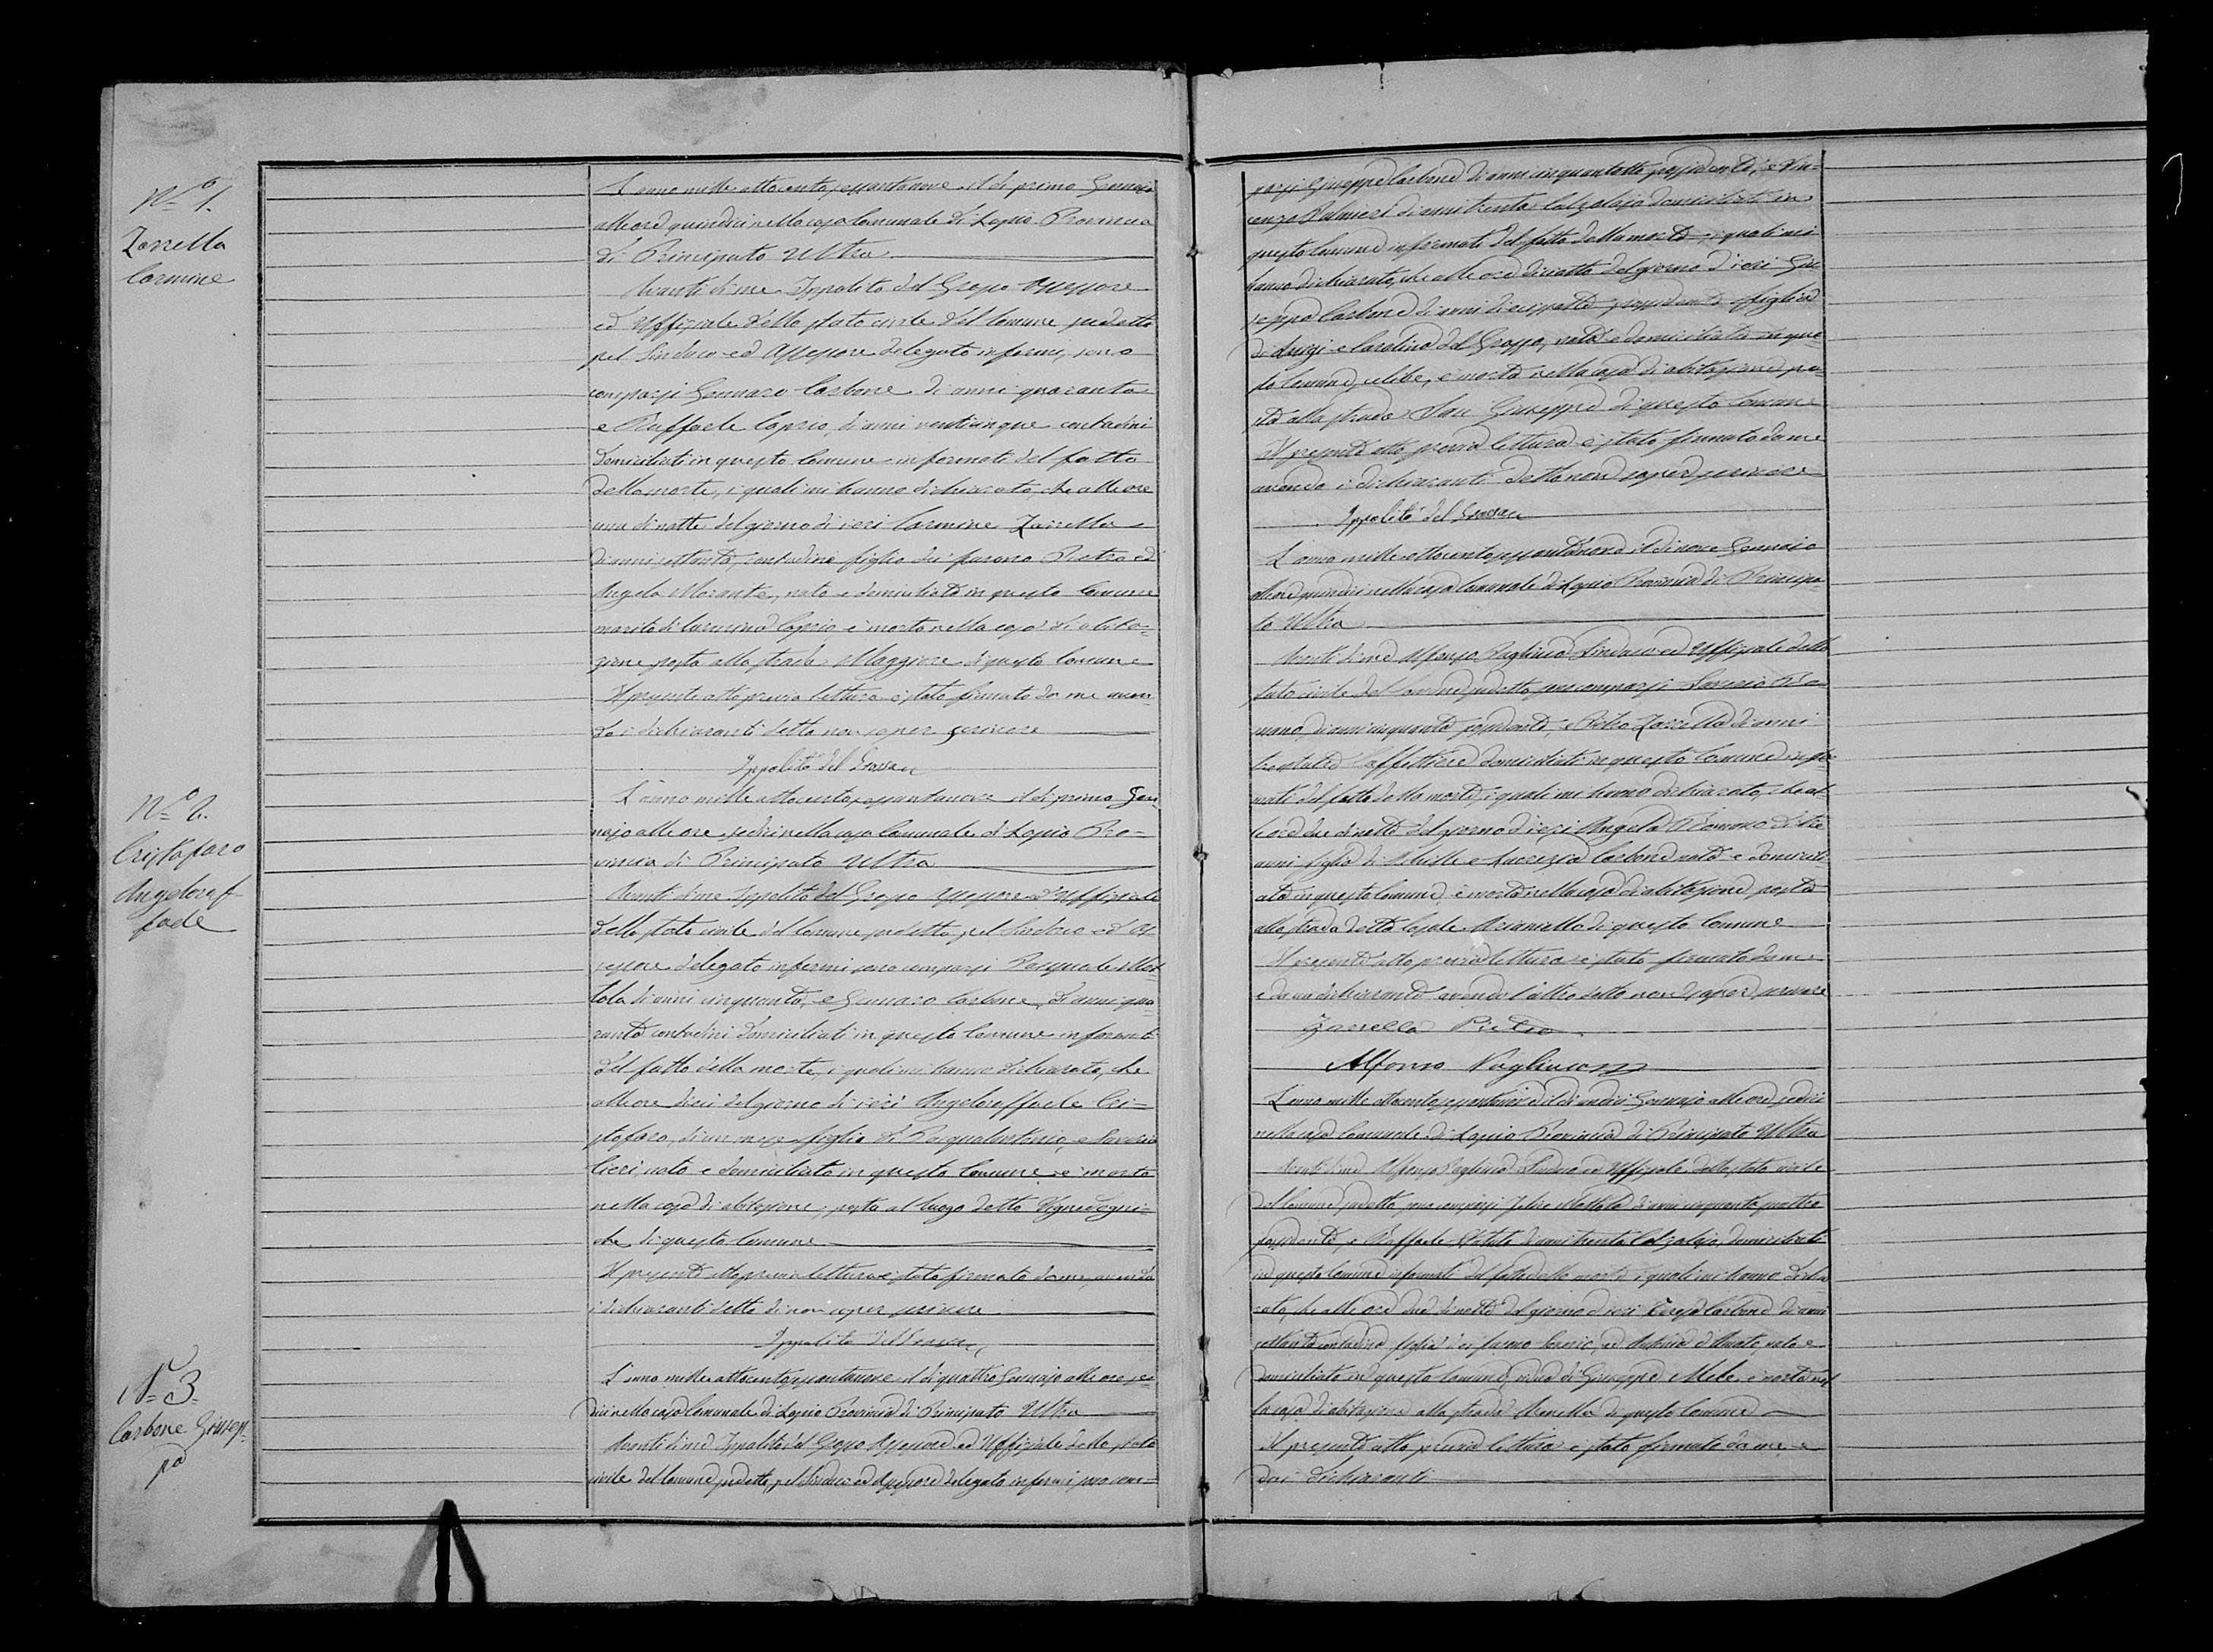 N.o 1.
Zarrella
Carmine
L'anno mille ottocento sessantanove il dì primo Gennajo
alle ore quindici nella casa Comunale di Lapio Provincia
di Principato Ultra
Avanti di me Ippolito del Grosso Assessore
ed Uffiziale dello stato civile del Comune sudetto
pel Sindaco ed Assessore delegato infermi, sono
comparsi Gennaro Carbone di anni quaranta
e Raffaele Caprio, di anni venticinque contadini
domiciliati in questo Comune informati del fatto
della morte, i quali mi hanno dichiarato, che alle ore
una di notte del giorno di ieri Carmine Zarrella
di anni settanta, contadino figlio dei furono Pietro ed
Angela Morante, nato e domiciliato in questo Comune
marito di Carmina Caprio, è morto nella casa di abita-
zione posta alla strada Maggiore di questo Comune
Il presente atto previa lettura è stato firmato da me aven-
do i dichiaranti detto non saper scrivere
Ippolito del Grosso
N.o 2.
Cristofaro
Angeloraf
faele
L'anno mille ottocento sessantanove il dì primo Gen-
najo alle ore sedici nella casa Comunale di Lapio Pro-
vincia di Principato Ultra
Avanti di me Ippolito del Grosso Assessore ed Uffiziale
dello stato civile del Comune sudetto, pel Sindaco ed As-
sessore delegato infermi sono comparsi Pasquale Mot-
tola di anni cinquanta, e Gennaro Carbone, di anni qua
ranta contadini domiciliati in questo Comune informati
del fatto della morte, i quali mi hanno dichiarato, che
alle ore dieci del giorno di ieri Angeloraffaele Cri-
stofaro, di un mese figlio di Pasqualantonio, e Saveria
Cieri, nato e domiciliato in questo Comune, è morto
nella casa di abitazione, posta al luogo detto
che di questo Comune
Il presente atto previa lettura è stato firmato da me, avendo
i dichiaranti detto di non saper scrivere
Ippolito del Grosso
N.o 3.
Carbone Giusep-
pa
L'anno mille ottocento sessantanove il dì quattro Gennajo alle ore se-
dici nella casa Comunale di Lapio Provincia di Principato Ultra
Avanti di me Ippolito del Grosso Assessore ed Uffiziale dello stato
civile del Comune sudetto, pel Sindaco ed Assessore delegato infermi sono com-
parsi Giuseppe Carbone di anni cinquantotto possidente, e Vin-
cenzo Palmieri di anni trenta Calzolajo domiciliati in
questo Comune informati del fatto della morte, i quali mi
hanno dichiarato, che alle ore diciotto del giorno d'ieri Giu
seppa Carbone di anni diciassette possidente figlia
di Luigi e Carolina del Grosso, nata e domiciliata in que
sto Comune, celibe, è morta nella casa di abitazione po-
sta alla strada San Giuseppe di questo Comune
Il presente atto previa lettura è stato firmato da me
avendo i dichiaranti detto non saper scrivere
Ippolito del Grosso
L'anno mille ottocento sessantanove il dì nove Gennajo
alle ore quindici nella casa Comunale di Lapio Provincia di Principa
to Ultra
Avanti di me Alfonso Vagliuca Sindaco ed Uffiziale dello
stato civile del Comune sudetto sono comparsi Saverio
di anni cinquanta possidente, e Pietro Zarrella di anni
Caffettiere domiciliati in questo Comune infor
mati del fatto della morte, i quali mi hanno dichiarato, che al-
le ore due di notte del giorno d'ieri Angela di tre
anni figlia di Achille e Lucrezia Carbone nata e domicili
ata in questo Comune, è morta nella casa di abitazione posta
alla strada detta Casale Marianiello di questo Comune
Il presente atto previa lettura è stato firmato da me
e da un dichiarante avendo l'altro detto non saper scrivere
Zarrella Pietro
Alfonso Vagliuca
L'anno mille ottocento sessantanove il dì undici Gennajo alle ore sedici
nella casa Comunale di Lapio Provincia di Principato Ultra
Avanti di me Alfonso Vagliuca Sindaco ed Uffiziale dello stato civile
del Comune sudetto sono comparsi Felice Mottola di anni cinquanta quattro
possidente, e Raffaele di anni trenta Calzolajo, domiciliati
in questo Comune informati del fatto della morte i quali mi hanno dichia
rato, che alle ore due di notte del giorno d'ieri Teresa Carbone di anni
settanta contadina figlia dei furono ed Antonia d'Amato, nata e
domiciliata in questo Comune, vedova di Giuseppe Mele, è morta nel
la casa di abitazione alla strada di questo Comune
Il presente atto previa lettura è stato firmato da me e
dai dichiaranti